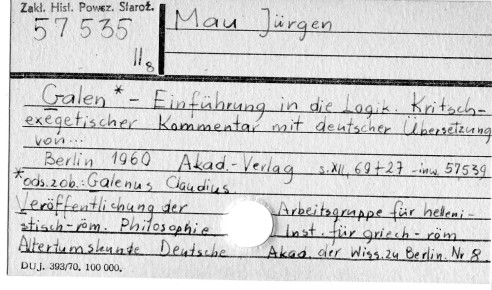 Zakł. Hist. Powsz. Staroż.
57535
IIs
Mau Jürgen
Galen* - Einführung in die Logik. Kritsch-
exegetischer Kommentar mit deutscher Übersetzung
von...
Berlin 1960 Akad.-Verlag s. XII, 69+27 - inw. 57539
*ods. zob.: Galenus Claudius
Veröffentlichung der Arbeitsgruppe für helleni-
stisch-röm. Philosophie Inst. für griech-röm
Altertumskunde Deutsche Akad. der Wiss. zu Berlin. Nr 8
DUJ. 393/70. 100 000.